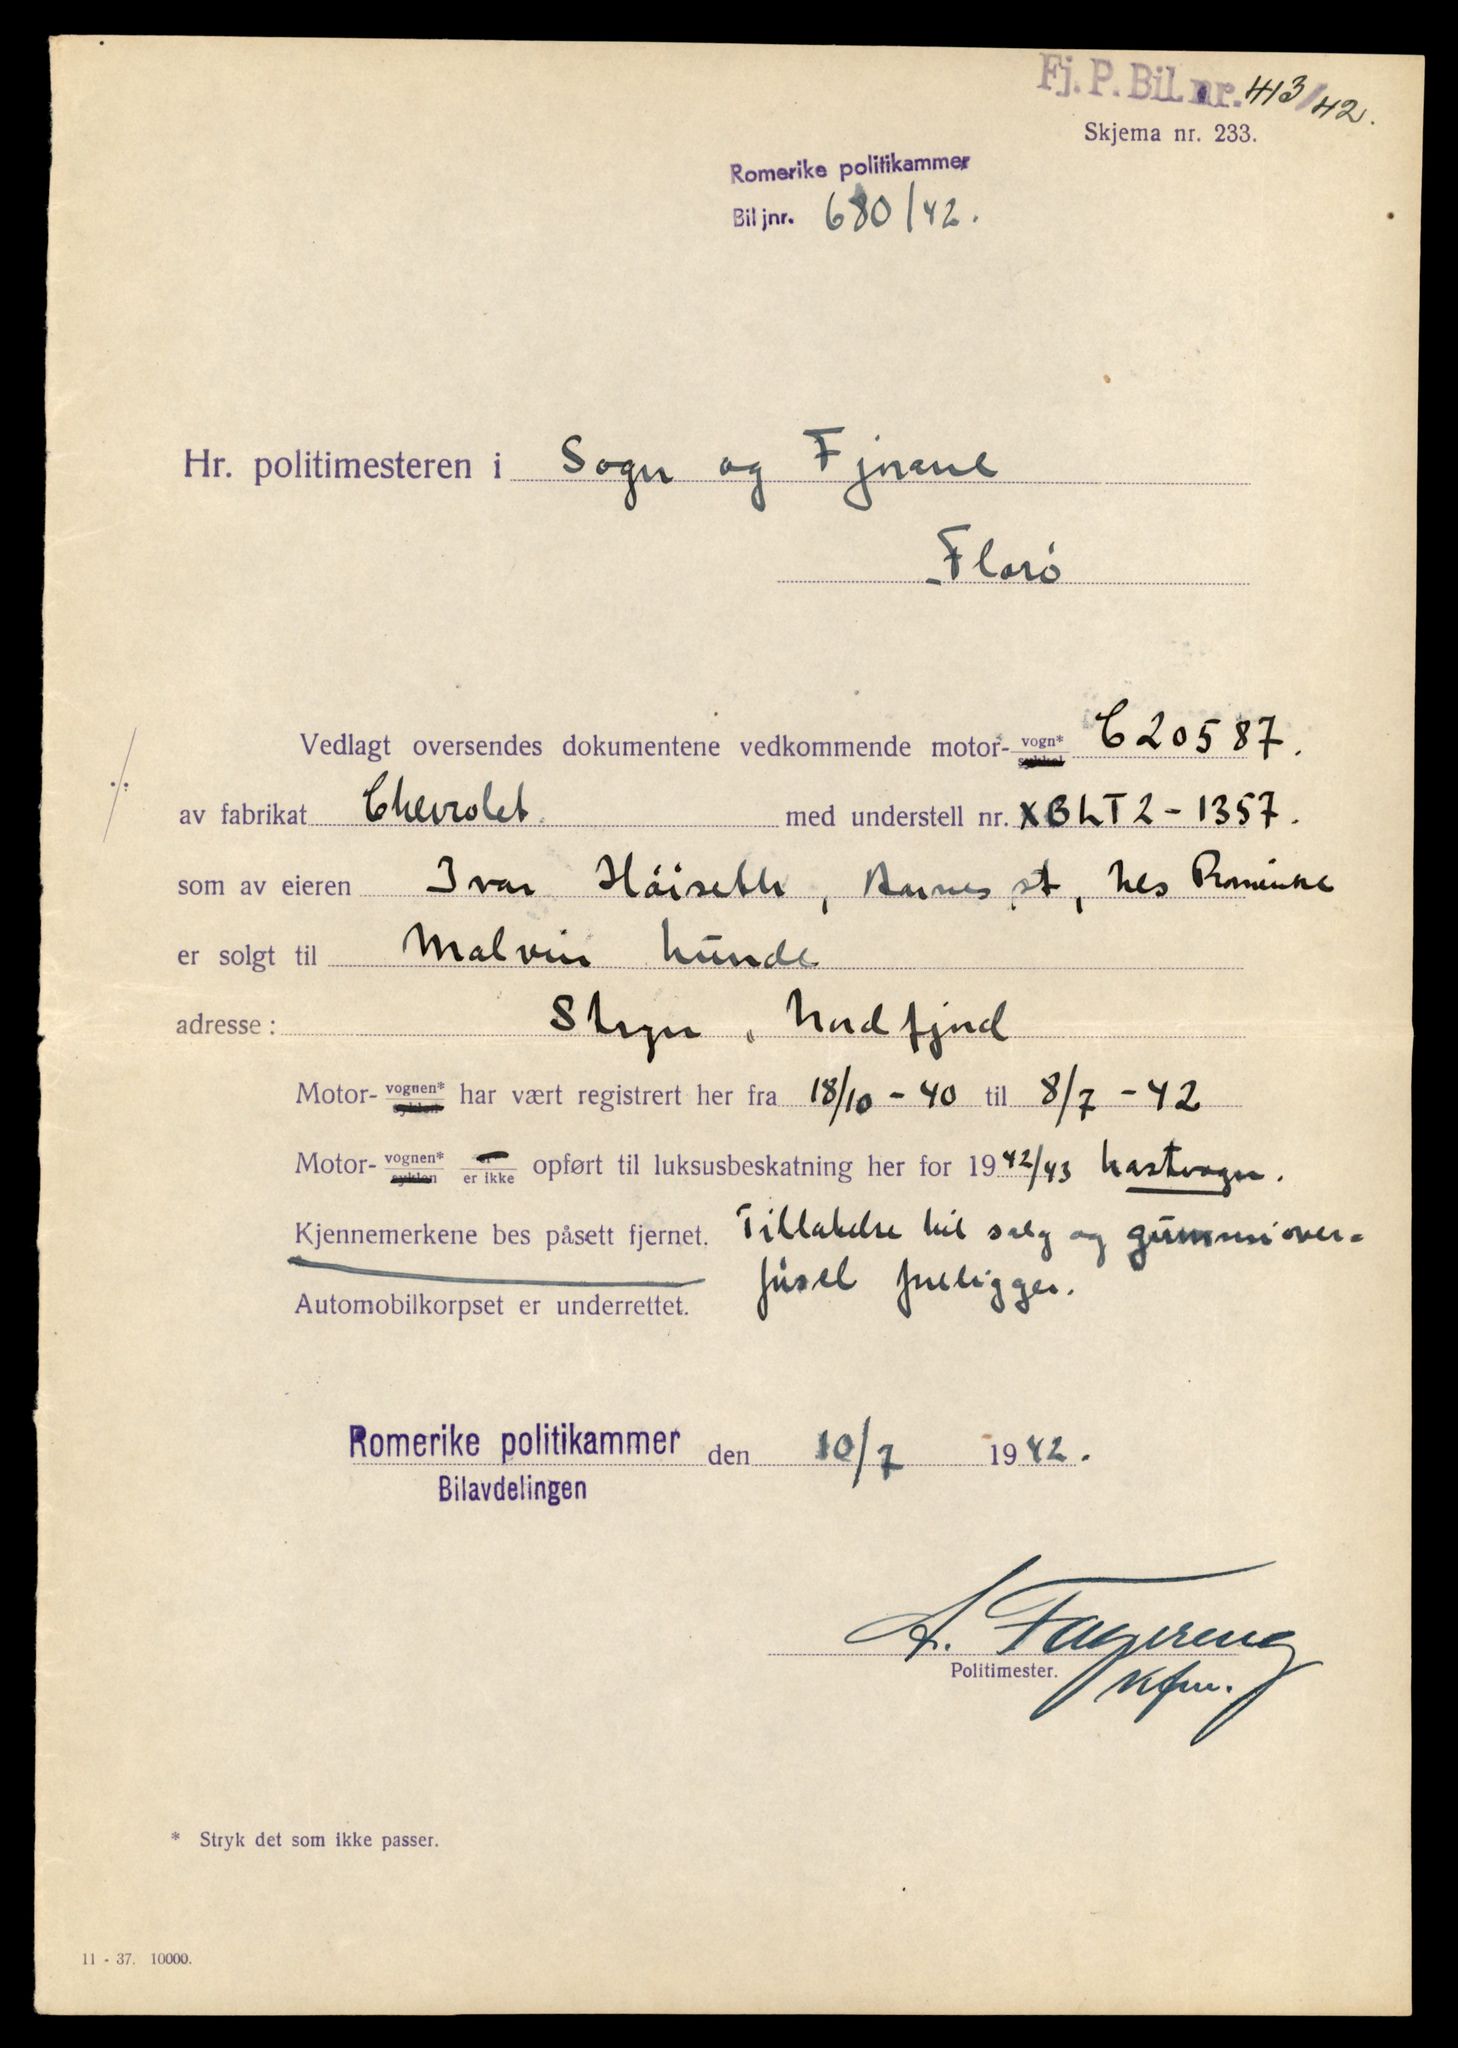 Fj. P. Bil. nr. 413/42.
Skjema nr. 233.
Romerike politikammer
Bil jnr. 680/42.
Hr. politimesteren i Sogn og Fjorane
Florö
Vedlagt oversendes dokumentene vedkommende motor- vogn* sykkel C20587.
av fabrikat Chevrolet. med understell nr. XBLT2-1357.
som av eieren Ivar Höiseth, Aarnes st, Nes Romerike
er solgt til Malvin Lunde
adresse: Stryn, Nordfjord
Motor- vognen* sykkel har vært registrert her fra 18/10-40 til 8/7-42
Motor- vognen* syklen er er ikke opført til luksusbeskatning her for 1942/43 Lastvogn.
Kjennemerkene bes påsett fjernet. Tillatelse til salg og gummiover-
Automobilkorpset er underrettet. försel foreligger.
Romerike politikammer den 10/7 1942.
Bilavdelingen
A. Fagereng
Politimester. Kfm.
* Stryk det som ikke passer.
11 - 37. 10000.